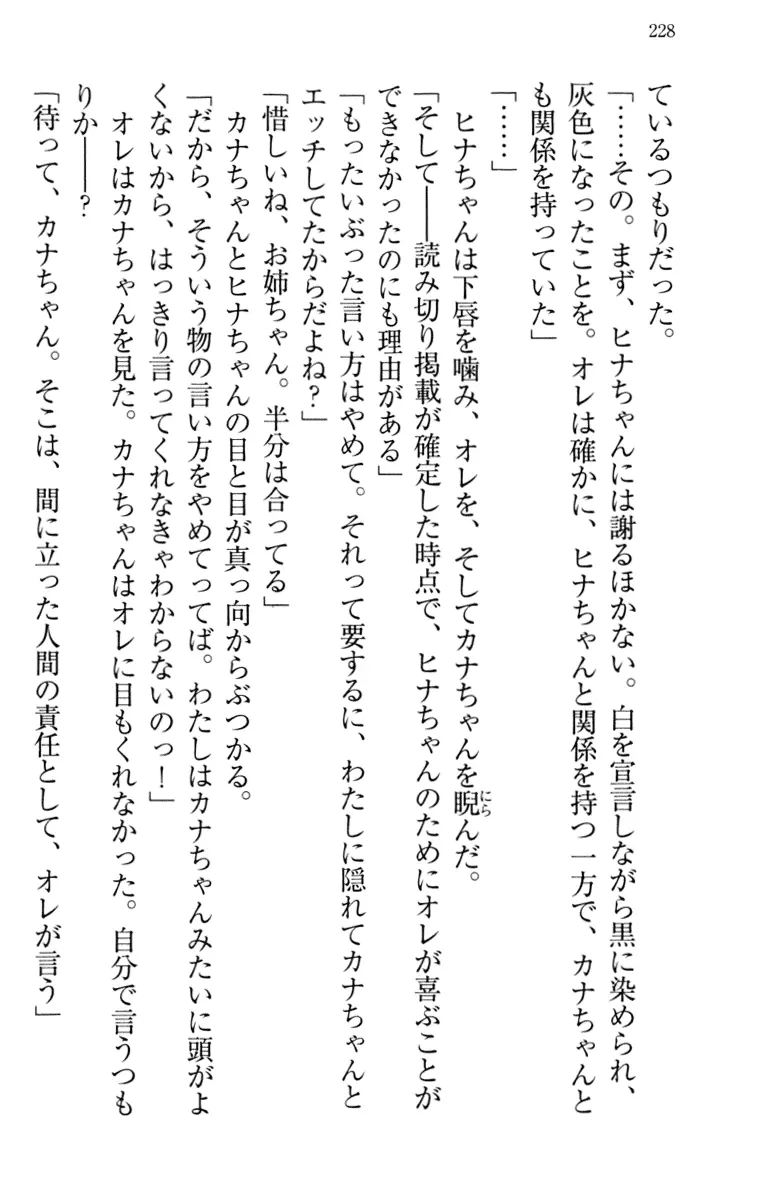 228
ているつもりだった。
「……その。まず、ヒナちゃんには謝るほかない。白を宣言しながら黒に染められ、
灰色になったことを。オレは確かに、ヒナちゃんと関係を持つ一方で、カナちゃんと
も関係を持っていた」
「……」
ヒナちゃんは下唇を噛み、オレを、そしてカナちゃんを睨んだ。
にら
「そして――読み切り掲載が確定した時点で、ヒナちゃんのためにオレが喜ぶことが
できなかったのにも理由がある」
「もったいぶった言い方はやめて。それって要するに、わたしに隠れてカナちゃんと
エッチしてたからだよね？」
「惜しいね、お姉ちゃん。半分は合ってる」
カナちゃんとヒナちゃんの目と目が真っ向からぶつかる。
「だから、そういう物の言い方をやめてってば。わたしはカナちゃんみたいに頭がよ
くないから、はっきり言ってくれなきゃわからないのっ！」
オレはカナちゃんを見た。カナちゃんはオレに目もくれなかった。自分で言うつも
りか――？
「待って、カナちゃん。そこは、間に立った人間の責任として、オレが言う」